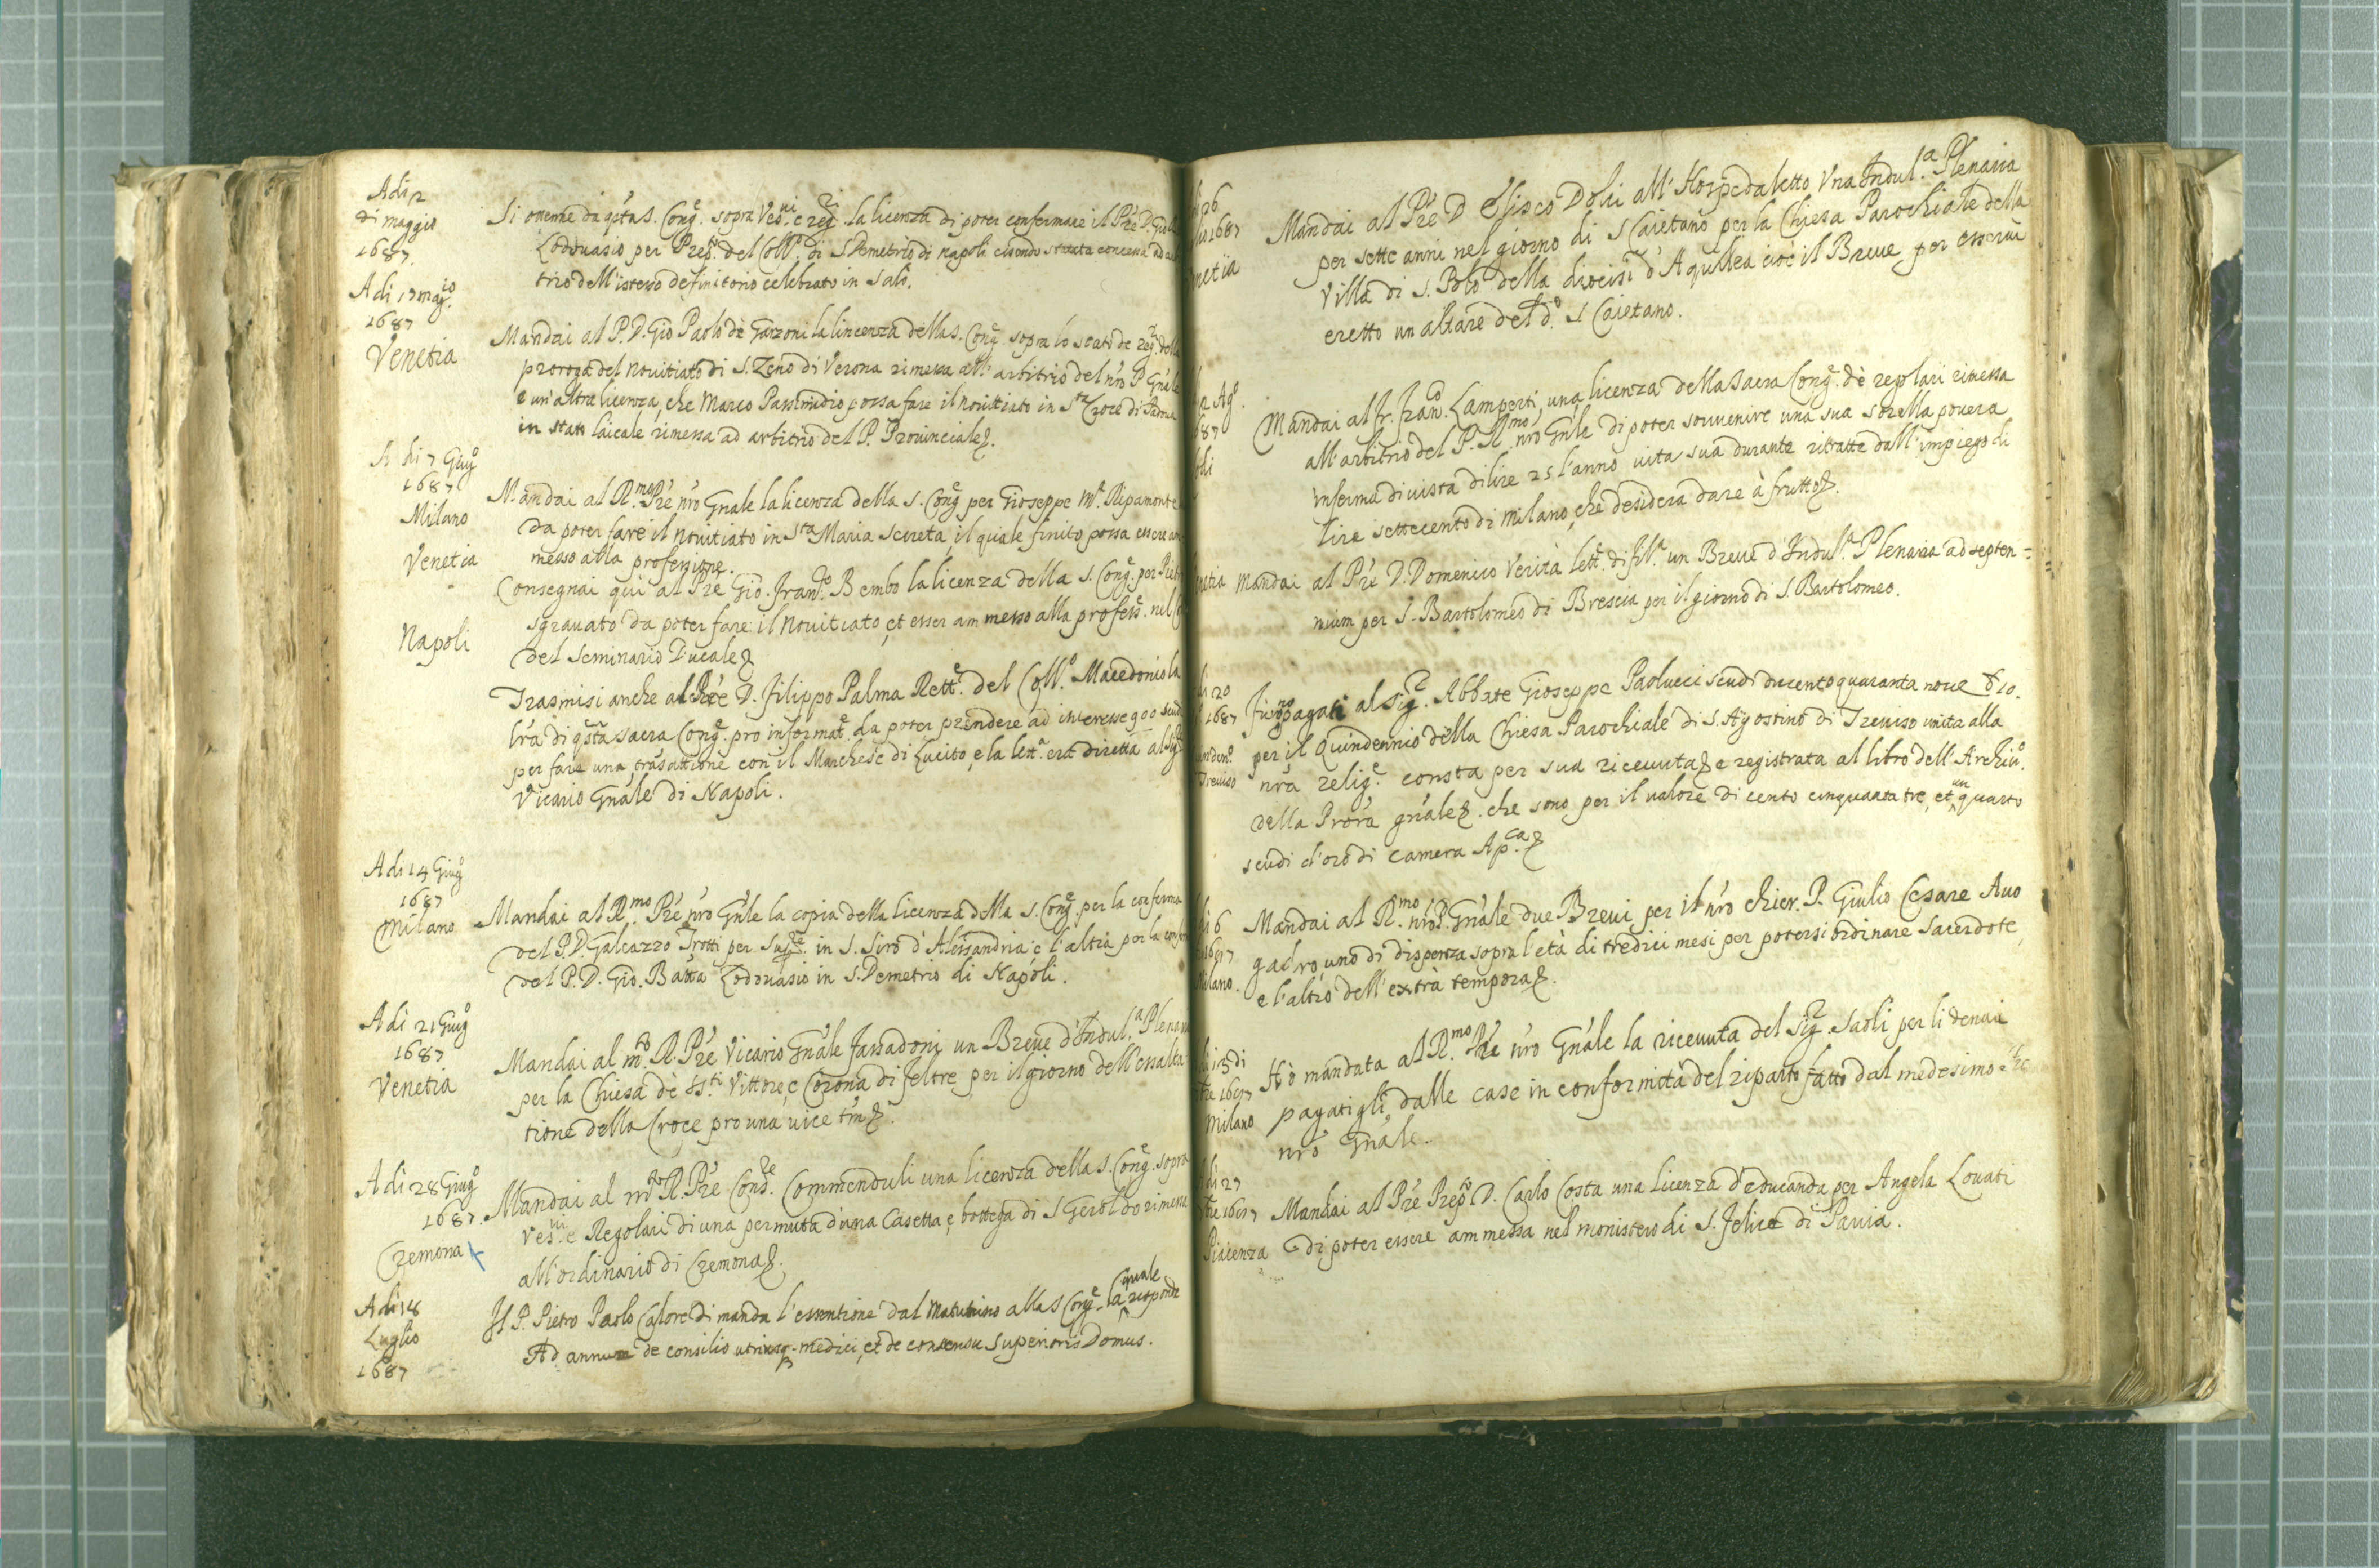 Adi 2
di maggio
1687
Si ottenne da q̃sta S. Cong.e sopra Ves.ni e reg.ri la licenza di poter confermare il P̃re D. Gio
Lodouasio per Prep.to del Coll.o di S Demetrio di napoli essendo concessa ad
trio dell'istesso definitorio celebrato in Salò.
Adi 17 mag.io
1687
Venetia
Mandai al P. D. Gio Paolo de Garzoni la lincenza della S. Cong.e sopra lo stato de reg.ri della
proroga del nouitiato di S. Zeno di Verona rimessa all'arbitrio del ñro P. Gñale
e un'altra licenza, che Marco possa fare il nouittiato in S.ta Croce di Padoua
in stato laicale rimessa ad arbitrio del P. Prouinciale.
A di 7 Giug.o
1687
Milano
Mandai al R.mo P̃re ñro Gñale la licenza della S. Cong.e per Gioseppe M.a Ripamonte
da poter fare il nouitiato in S.ta Maria Secreta, il quale finito possa essere am
messo alla professione.
Venetia
Consegnai qui al P̃re Gio. Fran.co Bembo la licenza della S. Cong.e per Pietr
sgrauato da poter fare il nouitiato, et esser ammesso alla profess.e nel
del Seminario Ducale
Napoli
Trasmisi anche al P̃re D. Filippo Palma Rett.e del Coll.o Macedonio la
lr̃a di q̃sta sacra Cong.e pro informat.e da poter prendere ad interesse 900 scud
per fare una trasattione con il Marchese di Lucito, e la lett.a era diretta al Sig.r
Vicario Gñale di Napoli.
Adi 14 Giug.o
1687
Milano
Mandai al R.mo P̃re ñro Gñle la copia della licenza della S. Cong.e per la conferma
del P. D. Galeazzo Trotti per Sup.re in S. Siro d'Alessandria e l'altra per la confer
del P. D. Gio. Batta Lodouasio in S. Demetrio di Napoli.
Adi 21 Giug.o
1687
Venetia
Mandai al m.to R. P̃re Vicario Gñale Fassadoni un Breue d'Indul.a Plenar
per la Chiesa de SS.ti Vittore, e Corona di Feltre per il giorno dell'essalta
tione della Croce pro una uice tm̃.
Adi 28 Giug.o
1687.
Cremona
Mandai al m.to R. P̃re Cons.re Commenduli una licenza della S. Cong.e sopra
Ves.ui e Regolari di una permuta d'una Casetta, e bottega di S Geroldo rimessa
all'ordinario di Cremona.
Adi 18
Luglio
1687
Il P. Pietro Paolo Calore dimanda l'essentione dal Matutino alla S Cong.e la quale risponde
Ad annum de consilio utriusq. medici, et de consensu Superioris Domus.
26
1687
netia
Mandai al P̃re D Elisco Dolci all'Hospedaletto una Indul.a Plenaria
per sette anni nel giorno di S Caietano per la Chiesa Parochiale della
Villa di S. Polo della diocisi d'Aquilea cioè il Breue per esserui
eretto un altare del d.o S Caietano.
2 Ag.o
87
Mandai al fr. Fran.co Lamperti, una licenza della Sacra Cong.e de regolari rimessa
all'arbitrio del P. R.mo ñro Gñle di poter souuenire una sua sorella pouera
inferma di uista di lire 25 l'anno uita sua durante ritratte dall'impiego di
lire settecento di Milano, che desidera dare à frutto.
netia
Mandai al P̃re D. Domenico Verità lett.e di fil.a un Breue d'Indul.a Plenaria ad septen=
nium per S. Bartolomeo di Brescia per il giorno di S. Bartolomeo.
di 20
1687
Treuiso
Furono pagati al Sig.r Abbate Gioseppe Paolucci scudi ducentoquaranta noue 10.
per il Quindennio della Chiesa Parochiale di S. Agostino di Treuiso unita alla
nr̃a relig.e consta per sua riceuuta e registrata al libro dell'Archiu.o
della Prõra gñale. che sono per il ualore di cento cinquanta tre, et un quarto
scudi d'oro di Camera Ap.ca
6
Milano.
Mandai al R.mo ñro P. Gñale due Breui per il ñro chier.P. Giulio Cesare Auo
gadro, uno di dispenza sopra l'età di tredici mesi per potersi ordinare Sacerdote,
e l'altro dell'extrà tempora.
i 15 di
Milano
Hò mandata al R.mo P̃re ñro Gñale la riceuuta del Sig.r Saoli per li denari
pagatigli dalle case in conformità del riparto fatto dal medesimo
ñro Gñale.
di 27
Piacenza
Mandai al P̃re Prep.to D. Carlo Costa una licenza d'educanda per Angela Louati
di poter essere ammessa nel monistero di S. Felice di Pauia.